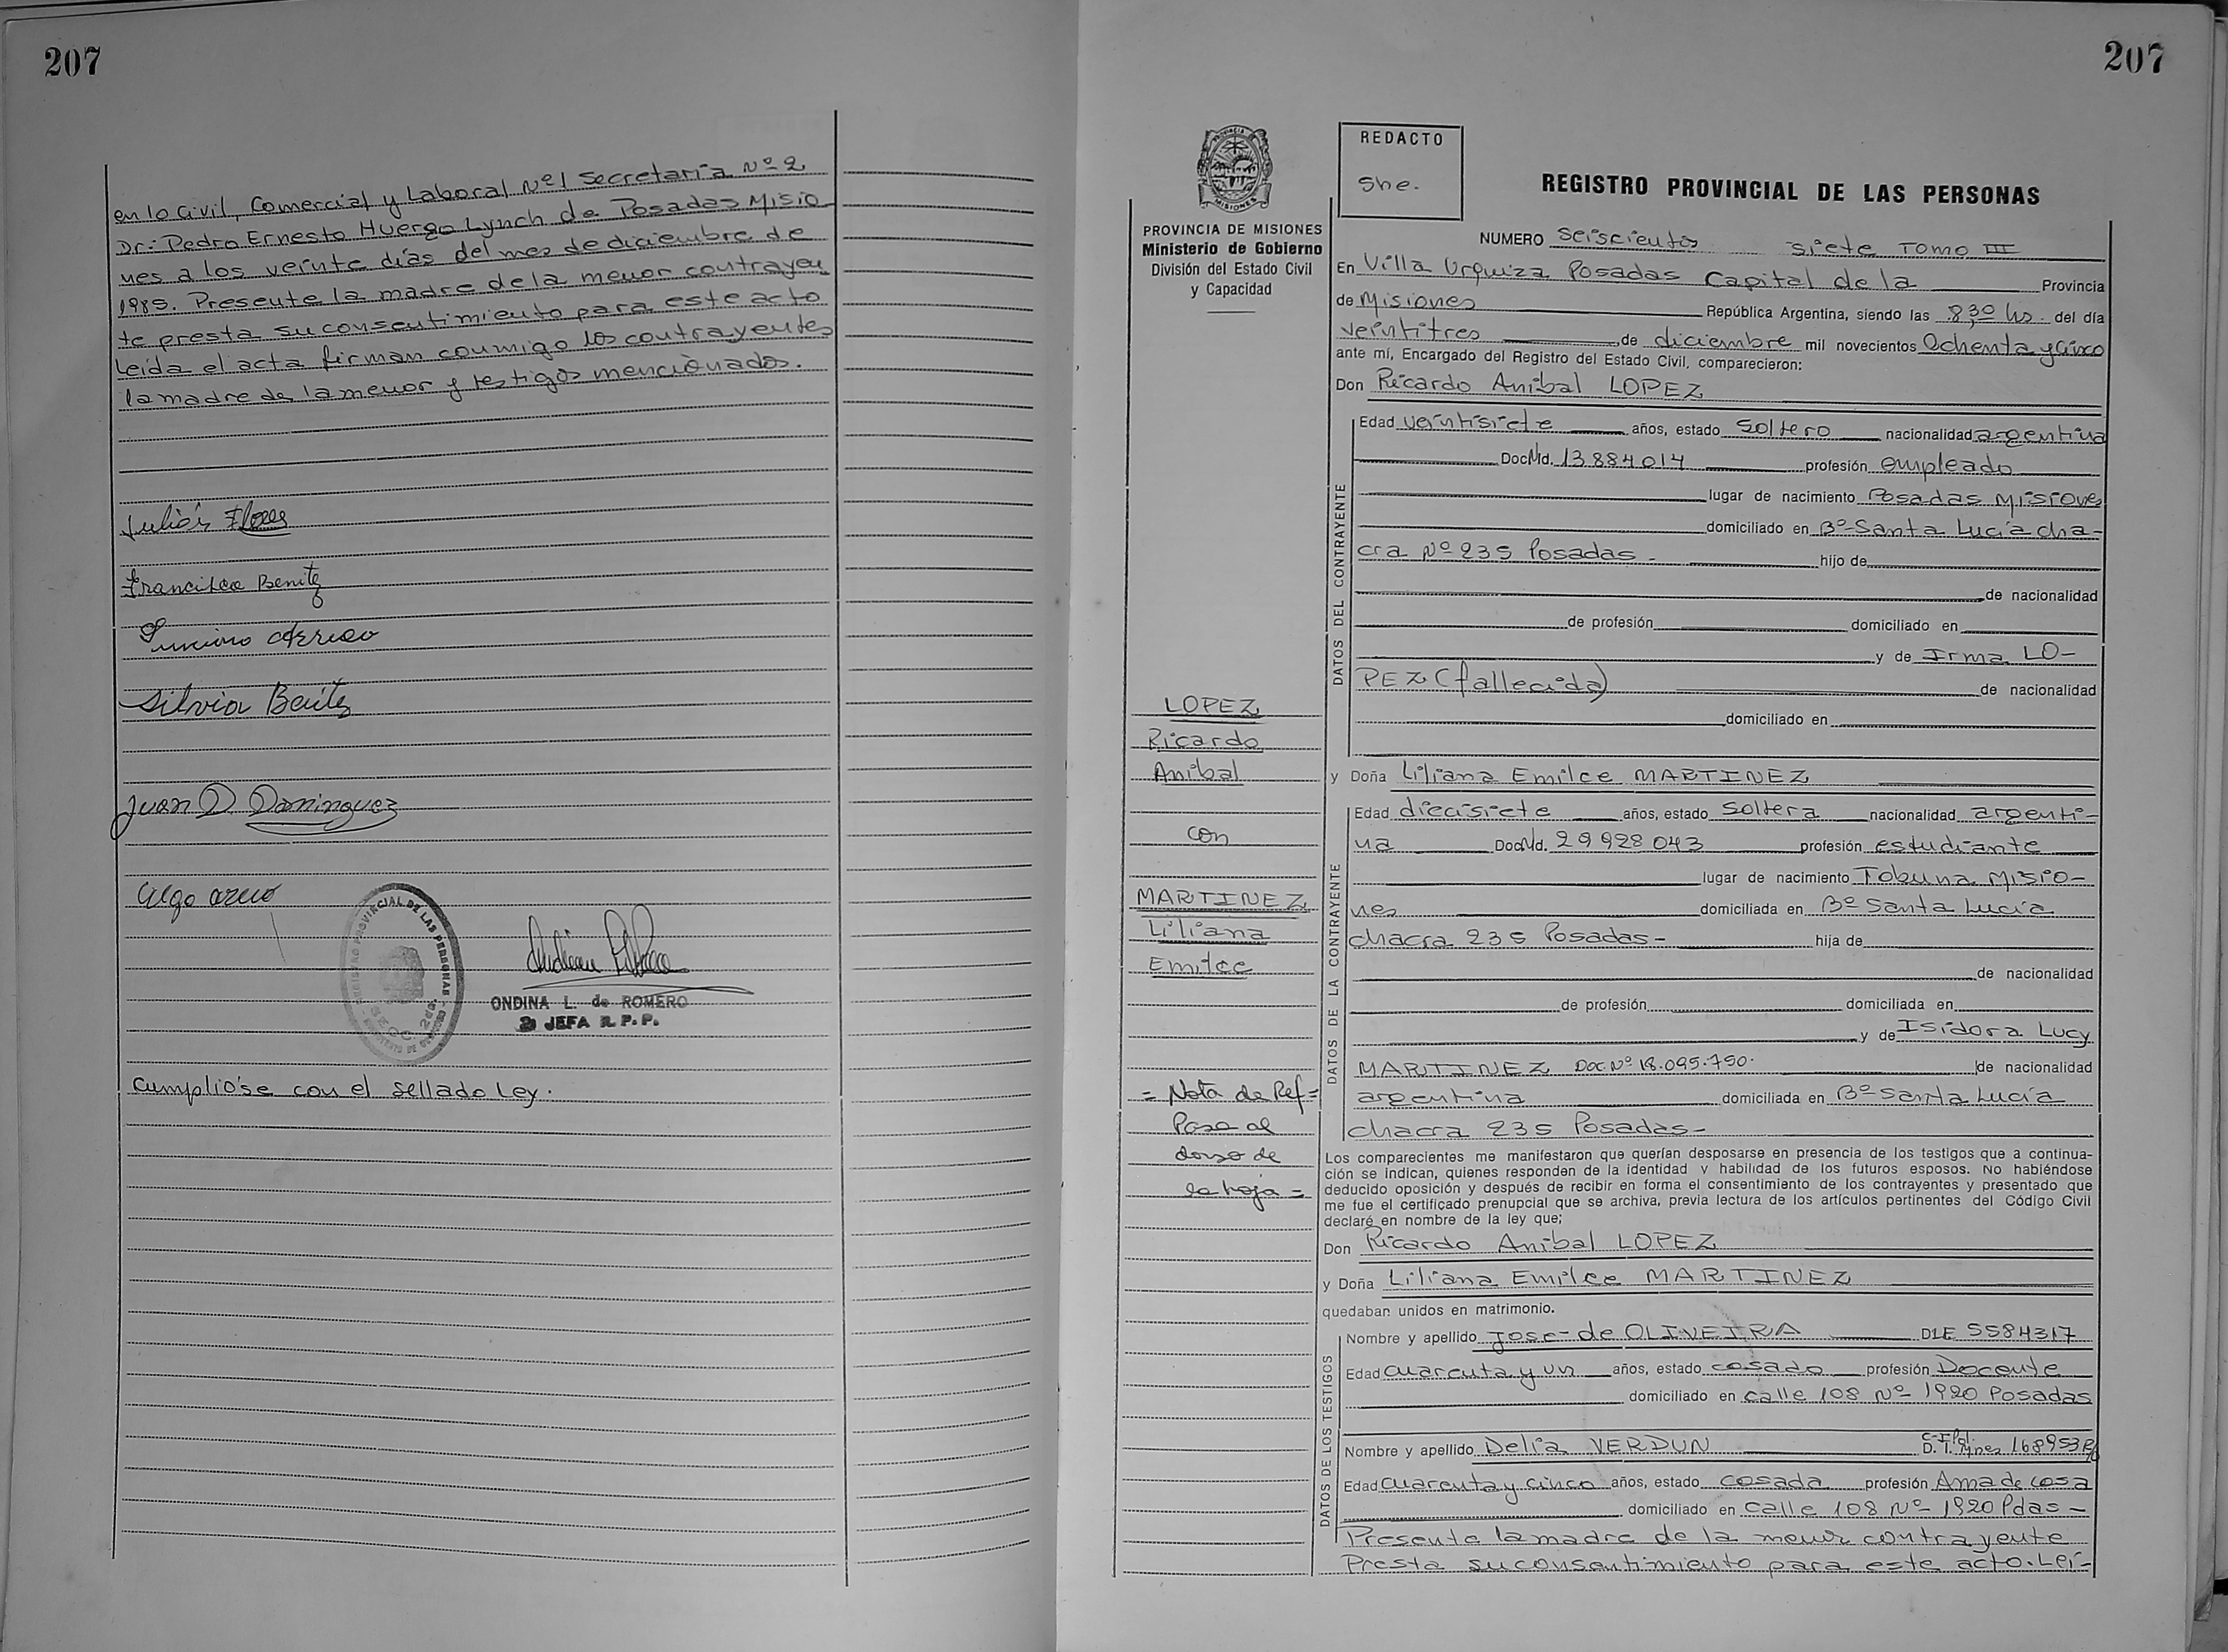 207
en lo Civil, Comercial y Laboral Nº1 Secretaría Nº2
Dr: Pedro Ernesto Huergo Lynch de Posadas Misio
nes a los veinte días del mes de diciembre de
1985. Presente la madre de la menor contrayen
te presta su consentimiento para este acto
Leída el acta firman conmigo los contrayentes
la madre de la menor y testigos mencionados.
Julián Flores
Francisca Benitz
Silvia Benitz
Juan D Dominguez
REGISTRO PROVINCIAL DE LAS PERSONAS
ONDINA L. de ROMERO
JEFA R. P. P.
Cumplióse con el sellado Ley.
207
PROVINCIA DE MISIONES
Ministerio de Gobierno
División del Estado Civil
y Capacidad
LOPEZ
Ricardo
Anibal
con
MARTINEZ
Liliana
Emilce
= Nota de Ref =
Pasa al
dorso de
la hoja =
REDACTO
She.
REGISTRO PROVINCIAL DE LAS PERSONAS
NUMERO seiscientos siete TOMO III
En Villa Urquiza Posadas Capital de la Provincia
de Misiones República Argentina, siendo las 8,30 hs. del día
veintitres de diciembre mil novecientos Ochenta y cinco
ante mí, Encargado del Registro del Estado Civil, comparecieron:
Don Ricardo Anibal LOPEZ
DATOS DEL CONTRAYENTE
Edad veintisiete años, estado Soltero nacionalidad argentina
Doc Nd. 13.884.014 profesión empleado
lugar de nacimiento Posadas Misiones
domiciliado en Bº Santa Lucía cha-
cra Nº 235 Posadas - hijo de
de nacionalidad
de profesión domiciliado en
y de Irma LO-
PEZ (fallecida) de nacionalidad
domiciliado en
y Doña Liliana Emilce MARTINEZ
DATOS DE LA CONTRAYENTE
Edad diecisiete años, estado soltera nacionalidad argenti-
na Doc Nd. 29928043 profesión estudiante
lugar de nacimiento Tobuna Misio-
nes domiciliada en Bº Santa Lucía
chacra 235 Posadas - hija de
de nacionalidad
de profesión domiciliada en
y de Isidora Lucy
MARTINEZ Doc. Nº 18.095.750. de nacionalidad
argentina domiciliada en Bº Santa Lucía
chacra 235 Posadas -
Los comparecientes me manifestaron que querían desposarse en presencia de los testigos que a continua-
ción se indican, quienes responden de la identidad y habilidad de los futuros esposos. No habiéndose
deducido oposición y después de recibir en forma el consentimiento de los contrayentes y presentado que
me fue el certificado prenupcial que se archiva, previa lectura de los artículos pertinentes del Código Civil
declaré en nombre de la ley que;
Don Ricardo Anibal LOPEZ
y Doña Liliana Emilce MARTINEZ
quedaban unidos en matrimonio.
DATOS DE LOS TESTIGOS
Nombre y apellido Jose de OLIVEIRA DIE 5584317
Edad cuarenta y un años, estado casado profesión Docente
domiciliado en calle 108 Nº 1920 Posadas
Nombre y apellido Delia VERDUN
Edad cuarenta y cinco años, estado casada profesión Ama de casa
domiciliado en calle 108 Nº 1920 Pdas -
Presente la madre de la menor contrayente
Presta su consentimiento para este acto. Leí-